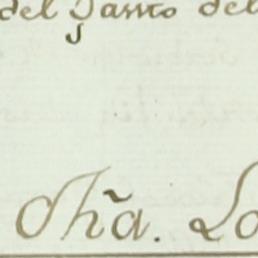 del Santo del
Oh̃a. Lo